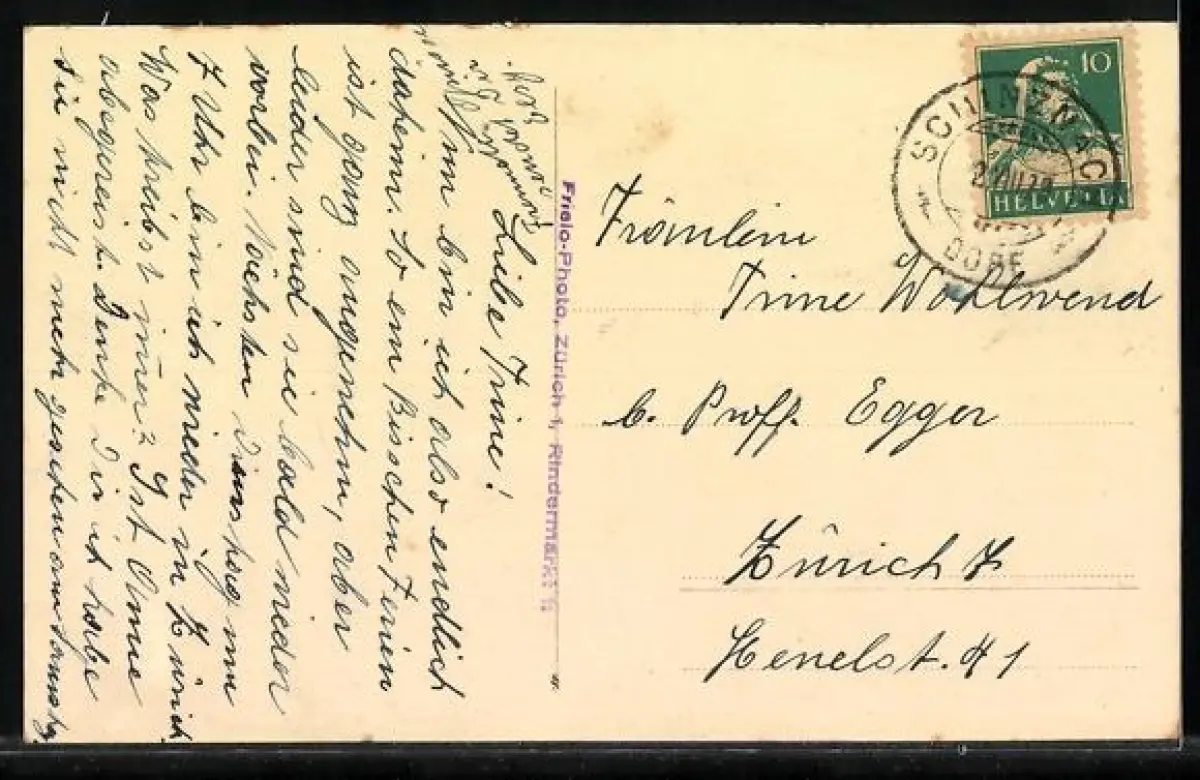 Liebe Trine!
Nun bin ich also endlich
daheim. So ein Bisschen Ferien
ist ganz angenehm, aber
leider sind sie bald wieder
vorbei. Nächsten Dienstag um
7 Uhr bin ich wieder in Zürich.
Was treibst immer? Ist
abegereist. Denke Dir ich habe
sie nicht mehr gesehen am Samstag
Frislo-Photo, Zürich 1, Rindermarkt
10
HELVETIA
SCHINZNACH
DORF
Fräulein
Trine Wohlwend
b. Proff. Egger
Zürich 7